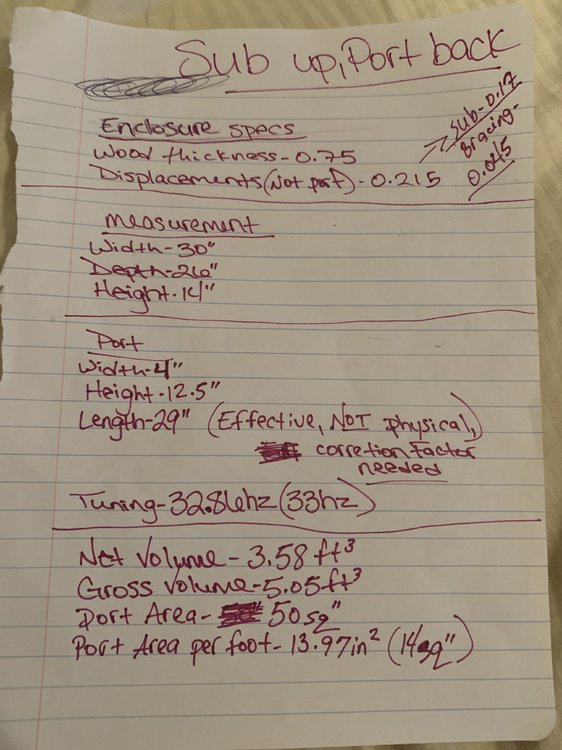 Sub up, Port back
Enclosure specs
Wood thickness - 0.75
Displacements (Not port) - 0.215
Sub - 0.17
Bracing -
0.045
measurement
Width - 30"
Depth - 26"
Height - 14"
Port
Width - 4"
Height - 12.5"
Length - 29" (Effective, NOT physical,)
corretion factor
needed
Tuning - 32.86hz (33hz)
Net Volume - 3.58 ft³
Gross volume - 5.05 ft³
Port Area - 50 sq"
Port Area per foot - 13.97in² (14sq")